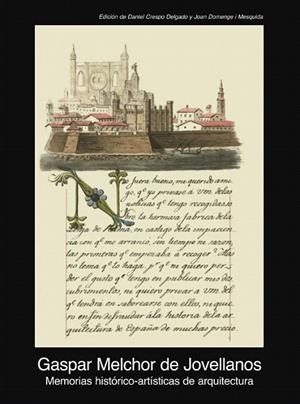 Edición de Daniel Crespo Delgado y Joan Domenge i Mesquida
No fuera bueno, mi querido ami-
go, qᵉ yo privase á vm delas
noticias qᵉ tengo recogidas so-
bre la hermosa fabrica dela
Lonja de Palma, en castigo dela impacien-
cia con qᵉ me arrancó, sin tiempo ni sazon,
las primeras qᵉ empezaba á recoger? Mas
no tema qᵉ lo haga, pʳ qᵉ ni quiero per-
der el gusto qᵉ tengo en publicar mis des-
cubrimientos, ni quiero privar á vm del
qᵉ tendrá en saborearse con ellos, ni quie-
ro en fin defraudar á la historia dela ar-
quitectura de España de muchas precio
Gaspar Melchor de Jovellanos
Memorias histórico-artísticas de arquitectura